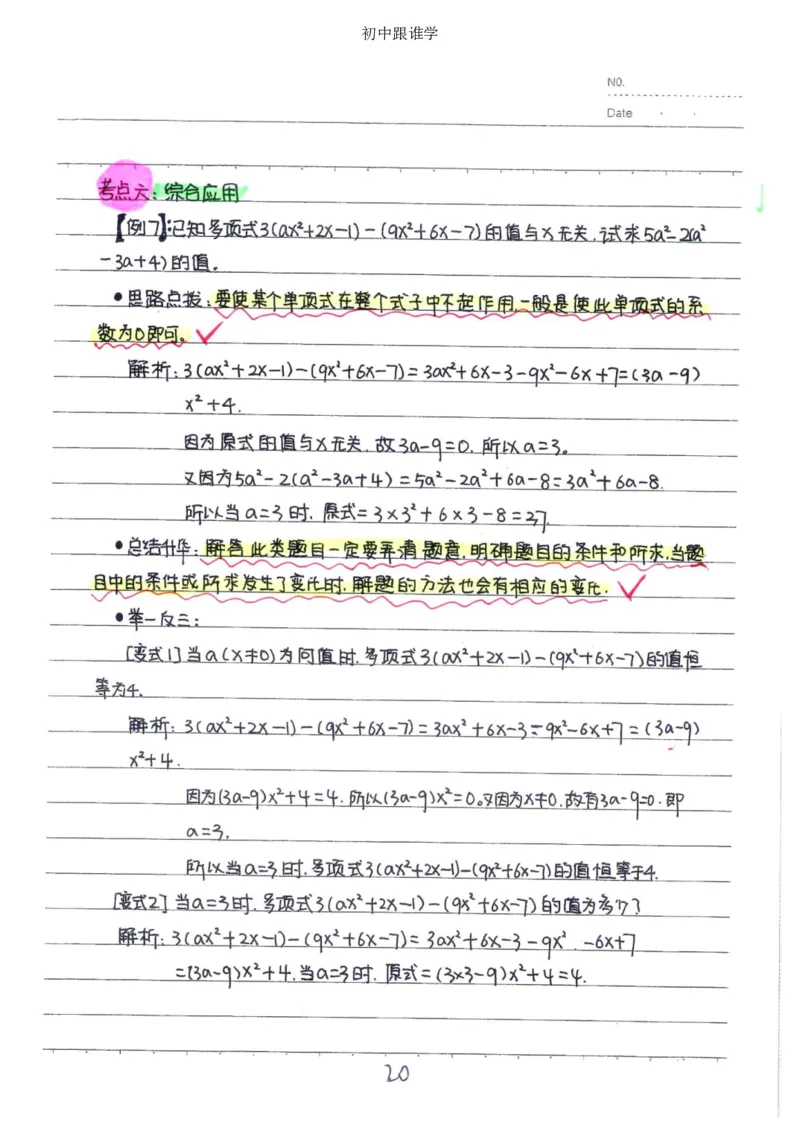 初中跟谁学
NO.
Date
考点六：综合应用
【例7】：已知多项式3(ax²+2x-1)-(9x²+6x-7)的值与x无关,试求5a²-2(a²
-3a+4)的值.
•思路点拨：要使某个单项式在整个式子中不起作用,一般是使此单项式的系
数为0即可。
解析：3(ax²+2x-1)-(9x²+6x-7)=3ax²+6x-3-9x²-6x+7=(3a-9)
x²+4.
因为原式的值与x无关,故3a-9=0,所以a=3。
又因为5a²-2(a²-3a+4)=5a²-2a²+6a-8=3a²+6a-8.
所以当a=3时,原式=3×3²+6×3-8=37.
•总结升华：解答此类题目一定要弄清题意,明确题目的条件和所求,当题
目中的条件或所求发生了变化时,解题的方法也会有相应的变化.
•举一反三：
[变式1]当a(x≠0)为何值时,多项式3(ax²+2x-1)-(9x²+6x-7)的值恒
等为4.
解析：3(ax²+2x-1)-(9x²+6x-7)=3ax²+6x-3-9x²-6x+7=(3a-9)
x²+4.
因为(3a-9)x²+4=4.所以(3a-9)x²=0。又因为x≠0,故有3a-9=0.即
a=3.
所以当a=3时,多项式3(ax²+2x-1)-(9x²+6x-7)的值恒等于4.
[变式2]当a=3时,多项式3(ax²+2x-1)-(9x²+6x-7)的值为多少？
解析：3(ax²+2x-1)-(9x²+6x-7)=3ax²+6x-3-9x²-6x+7
=(3a-9)x²+4.当a=3时.原式=(3×3-9)x²+4=4.
20